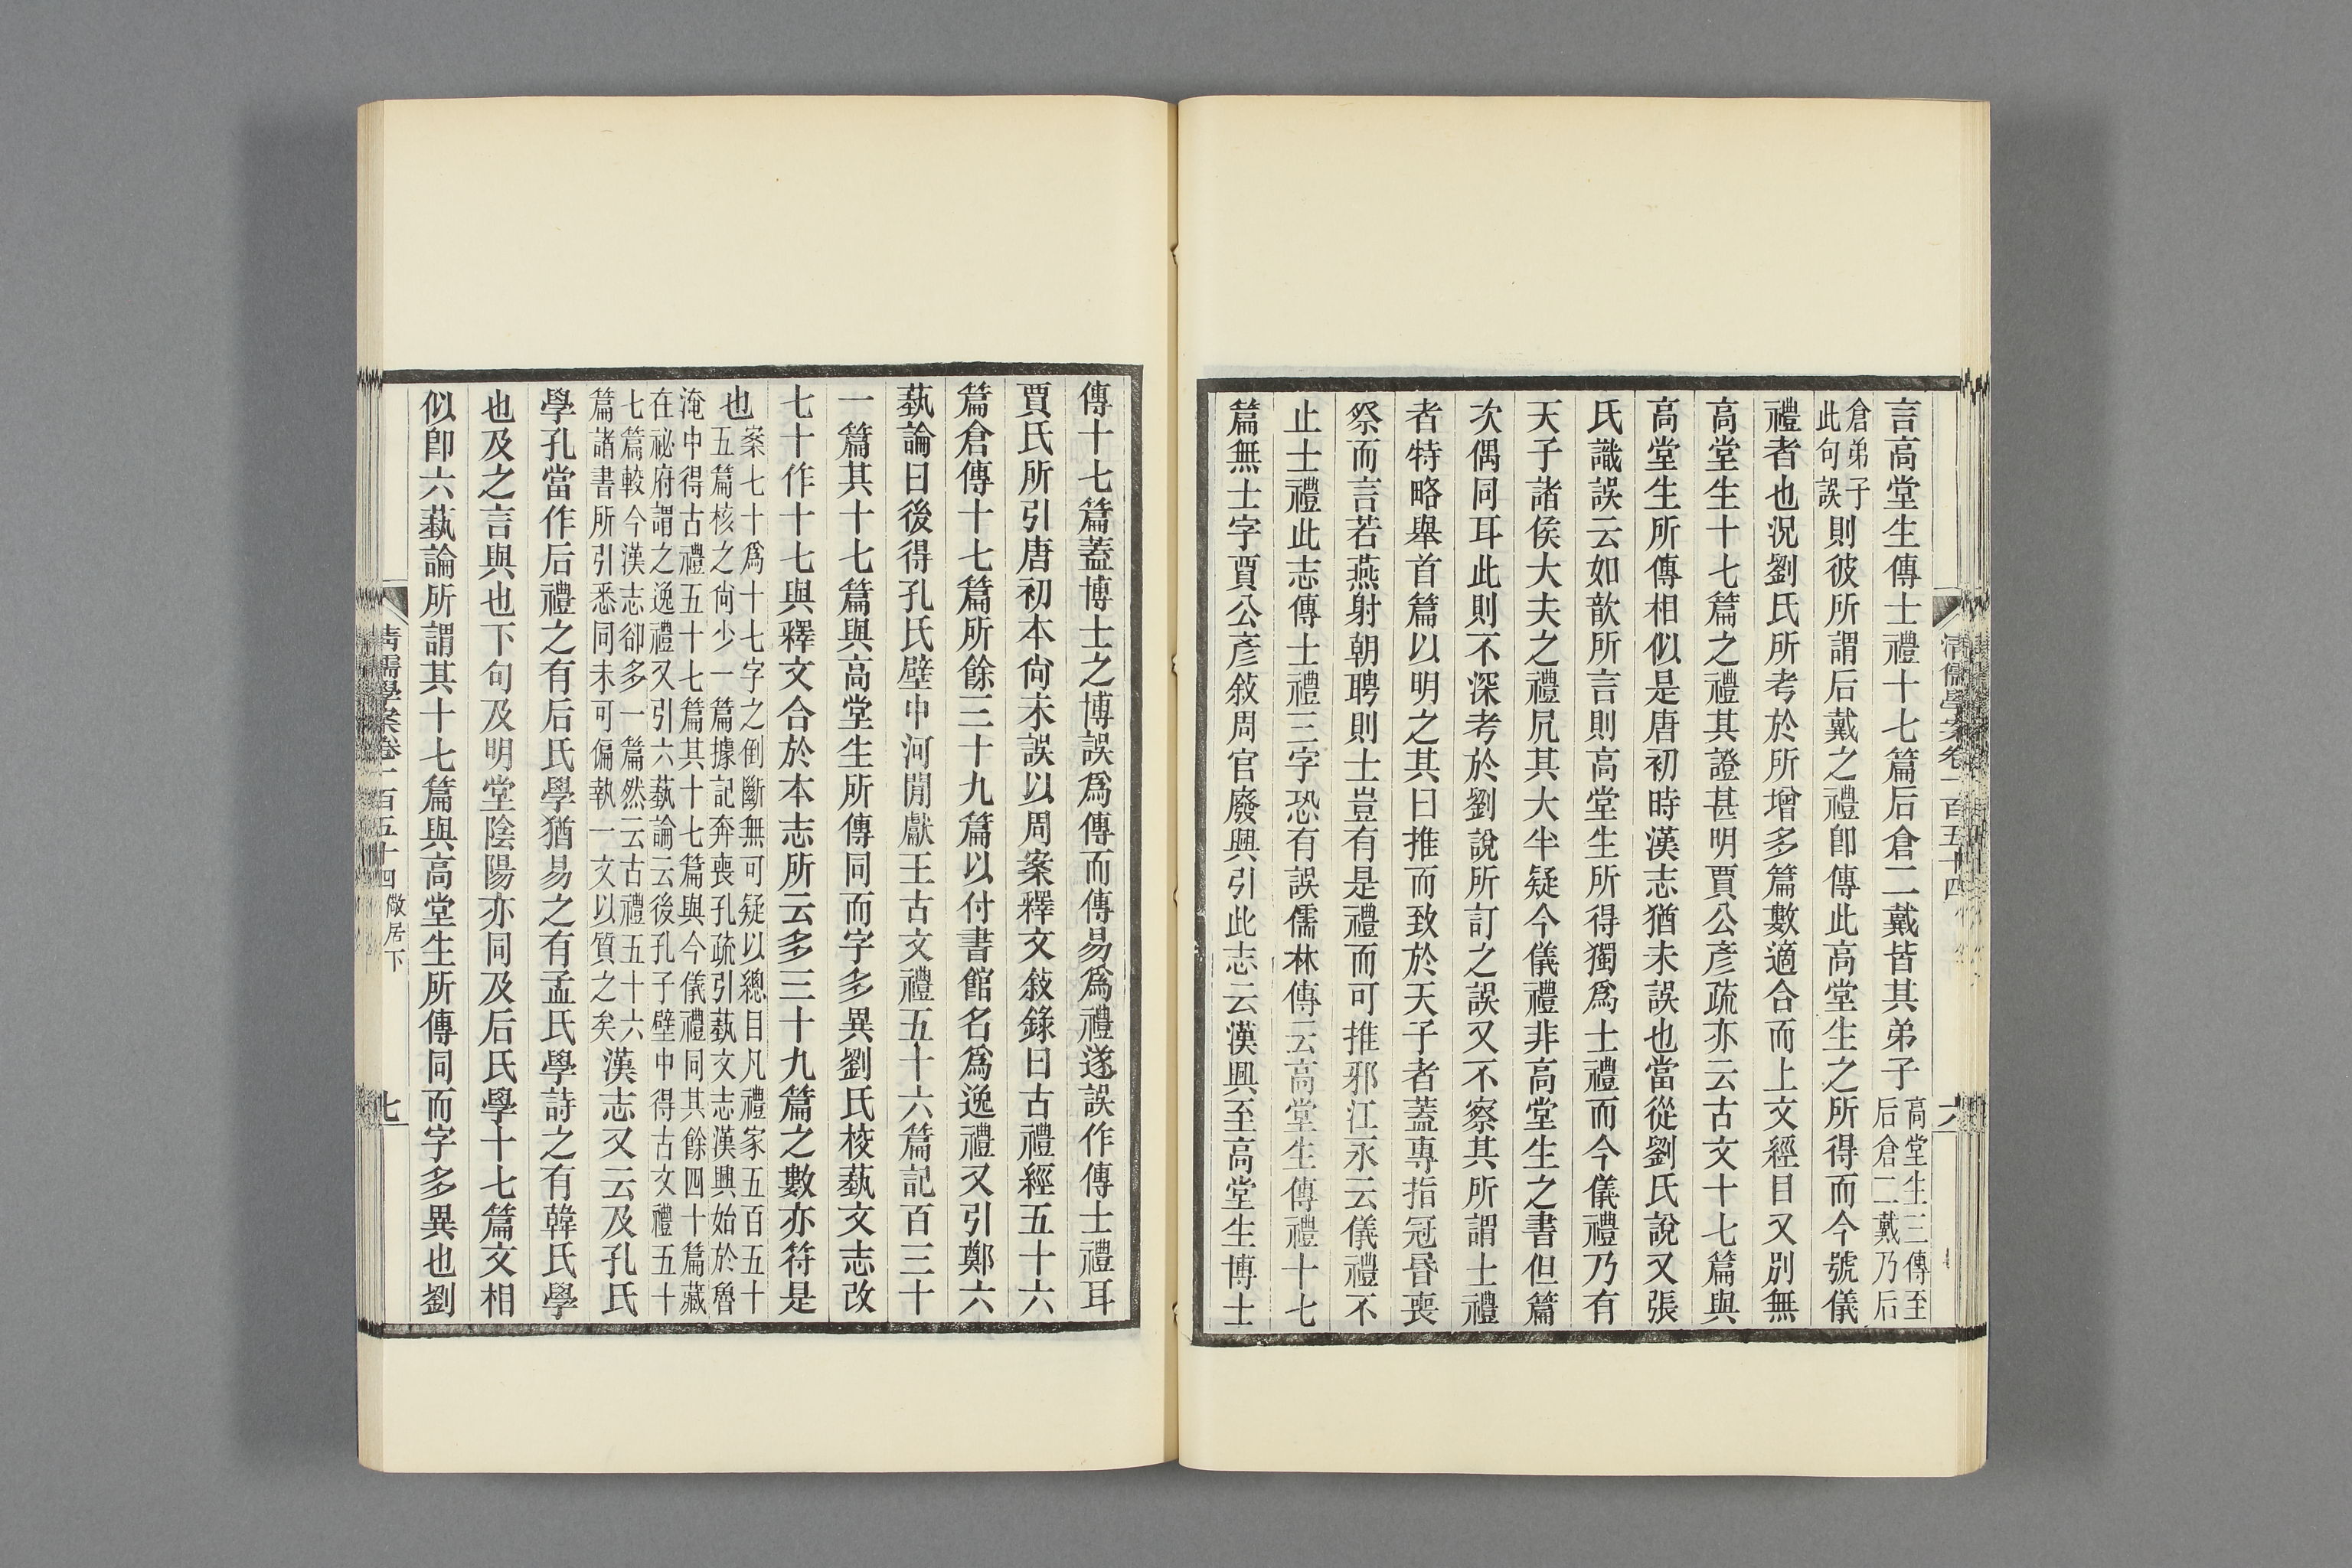 清儒學案卷一百五十四
六
言高堂生傳士禮十七篇后倉二戴皆其弟子高堂生三傳至后倉二戴乃后
倉弟子此句誤則彼所謂后戴之禮卽傳此高堂生之所得而今號儀
禮者也況劉氏所考於所增多篇數適合而上文經目又別無
高堂生十七篇之禮其證甚明賈公彥疏亦云古文十七篇與
高堂生所傳相似是唐初時漢志猶未誤也當從劉氏說又張
氏識誤云如歆所言則高堂生所得獨爲士禮而今儀禮乃有
天子諸侯大夫之禮凥其大半疑今儀禮非高堂生之書但篇
次偶同耳此則不深考於劉說所訂之誤又不察其所謂士禮
者特略舉首篇以明之其曰推而致於天子者蓋專指冠昏喪
祭而言若燕射朝聘則士豈有是禮而可推邪江永云儀禮不
止士禮此志傳士禮三字恐有誤儒林傳云高堂生傳禮十七
篇無士字賈公彥敘周官廢興引此志云漢興至高堂生博士
傳十七篇蓋博士之博誤爲傳而傳易爲禮遂誤作傳士禮耳
賈氏所引唐初本尙未誤以周案釋文敘錄曰古禮經五十六
篇倉傳十七篇所餘三十九篇以付書館名爲逸禮又引鄭六
蓺論曰後得孔氏壁中河閒獻王古文禮五十六篇記百三十
一篇其十七篇與高堂生所傳同而字多異劉氏校蓺文志改
七十作十七與釋文合於本志所云多三十九篇之數亦符是
也案七十爲十七字之倒斷無可疑以總目凡禮家五百五十
五篇核之尙少一篇據記奔喪孔疏引蓺文志漢興始於魯
淹中得古禮五十七篇其十七篇與今儀禮同其餘四十篇藏
在祕府謂之逸禮又引六蓺論云後孔子壁中得古文禮五十
七篇較今漢志卻多一篇然云古禮五十六
篇諸書所引悉同未可偏執一文以質之矣漢志又云及孔氏
學孔當作后禮之有后氏學猶易之有孟氏學詩之有韓氏學
也及之言與也下句及明堂陰陽亦同及后氏學十七篇文相
似卽六蓺論所謂其十七篇與高堂生所傳同而字多異也劉
清儒學案卷一百五十四 儆居下
七